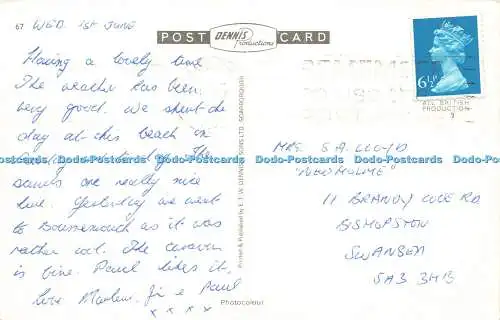 67 WED. 1ST JUNE
POST DENNIS Productions CARD
Having a lovely time
The weather has been
very good. We spent the
day at this beach in
The
sands are really nice
here. Yesterday we went
to Bournemouth as it was
rather wet. The caravan
is fine. Paul likes it.
Love Marlene, Jim & Paul
x x x x
Photocolour
SONS LTD. SCARBOROUGH
Printed & Published by E. T. W. DENNIS
6½P
ALL BRITISH
PRODUCTION
MRS. S.A. LLOYD
"NEWHOLME"
11 BRANDY COVE RD
BISHOPSTON
SWANSEA
SA3 3HB
www.hippostcard.com